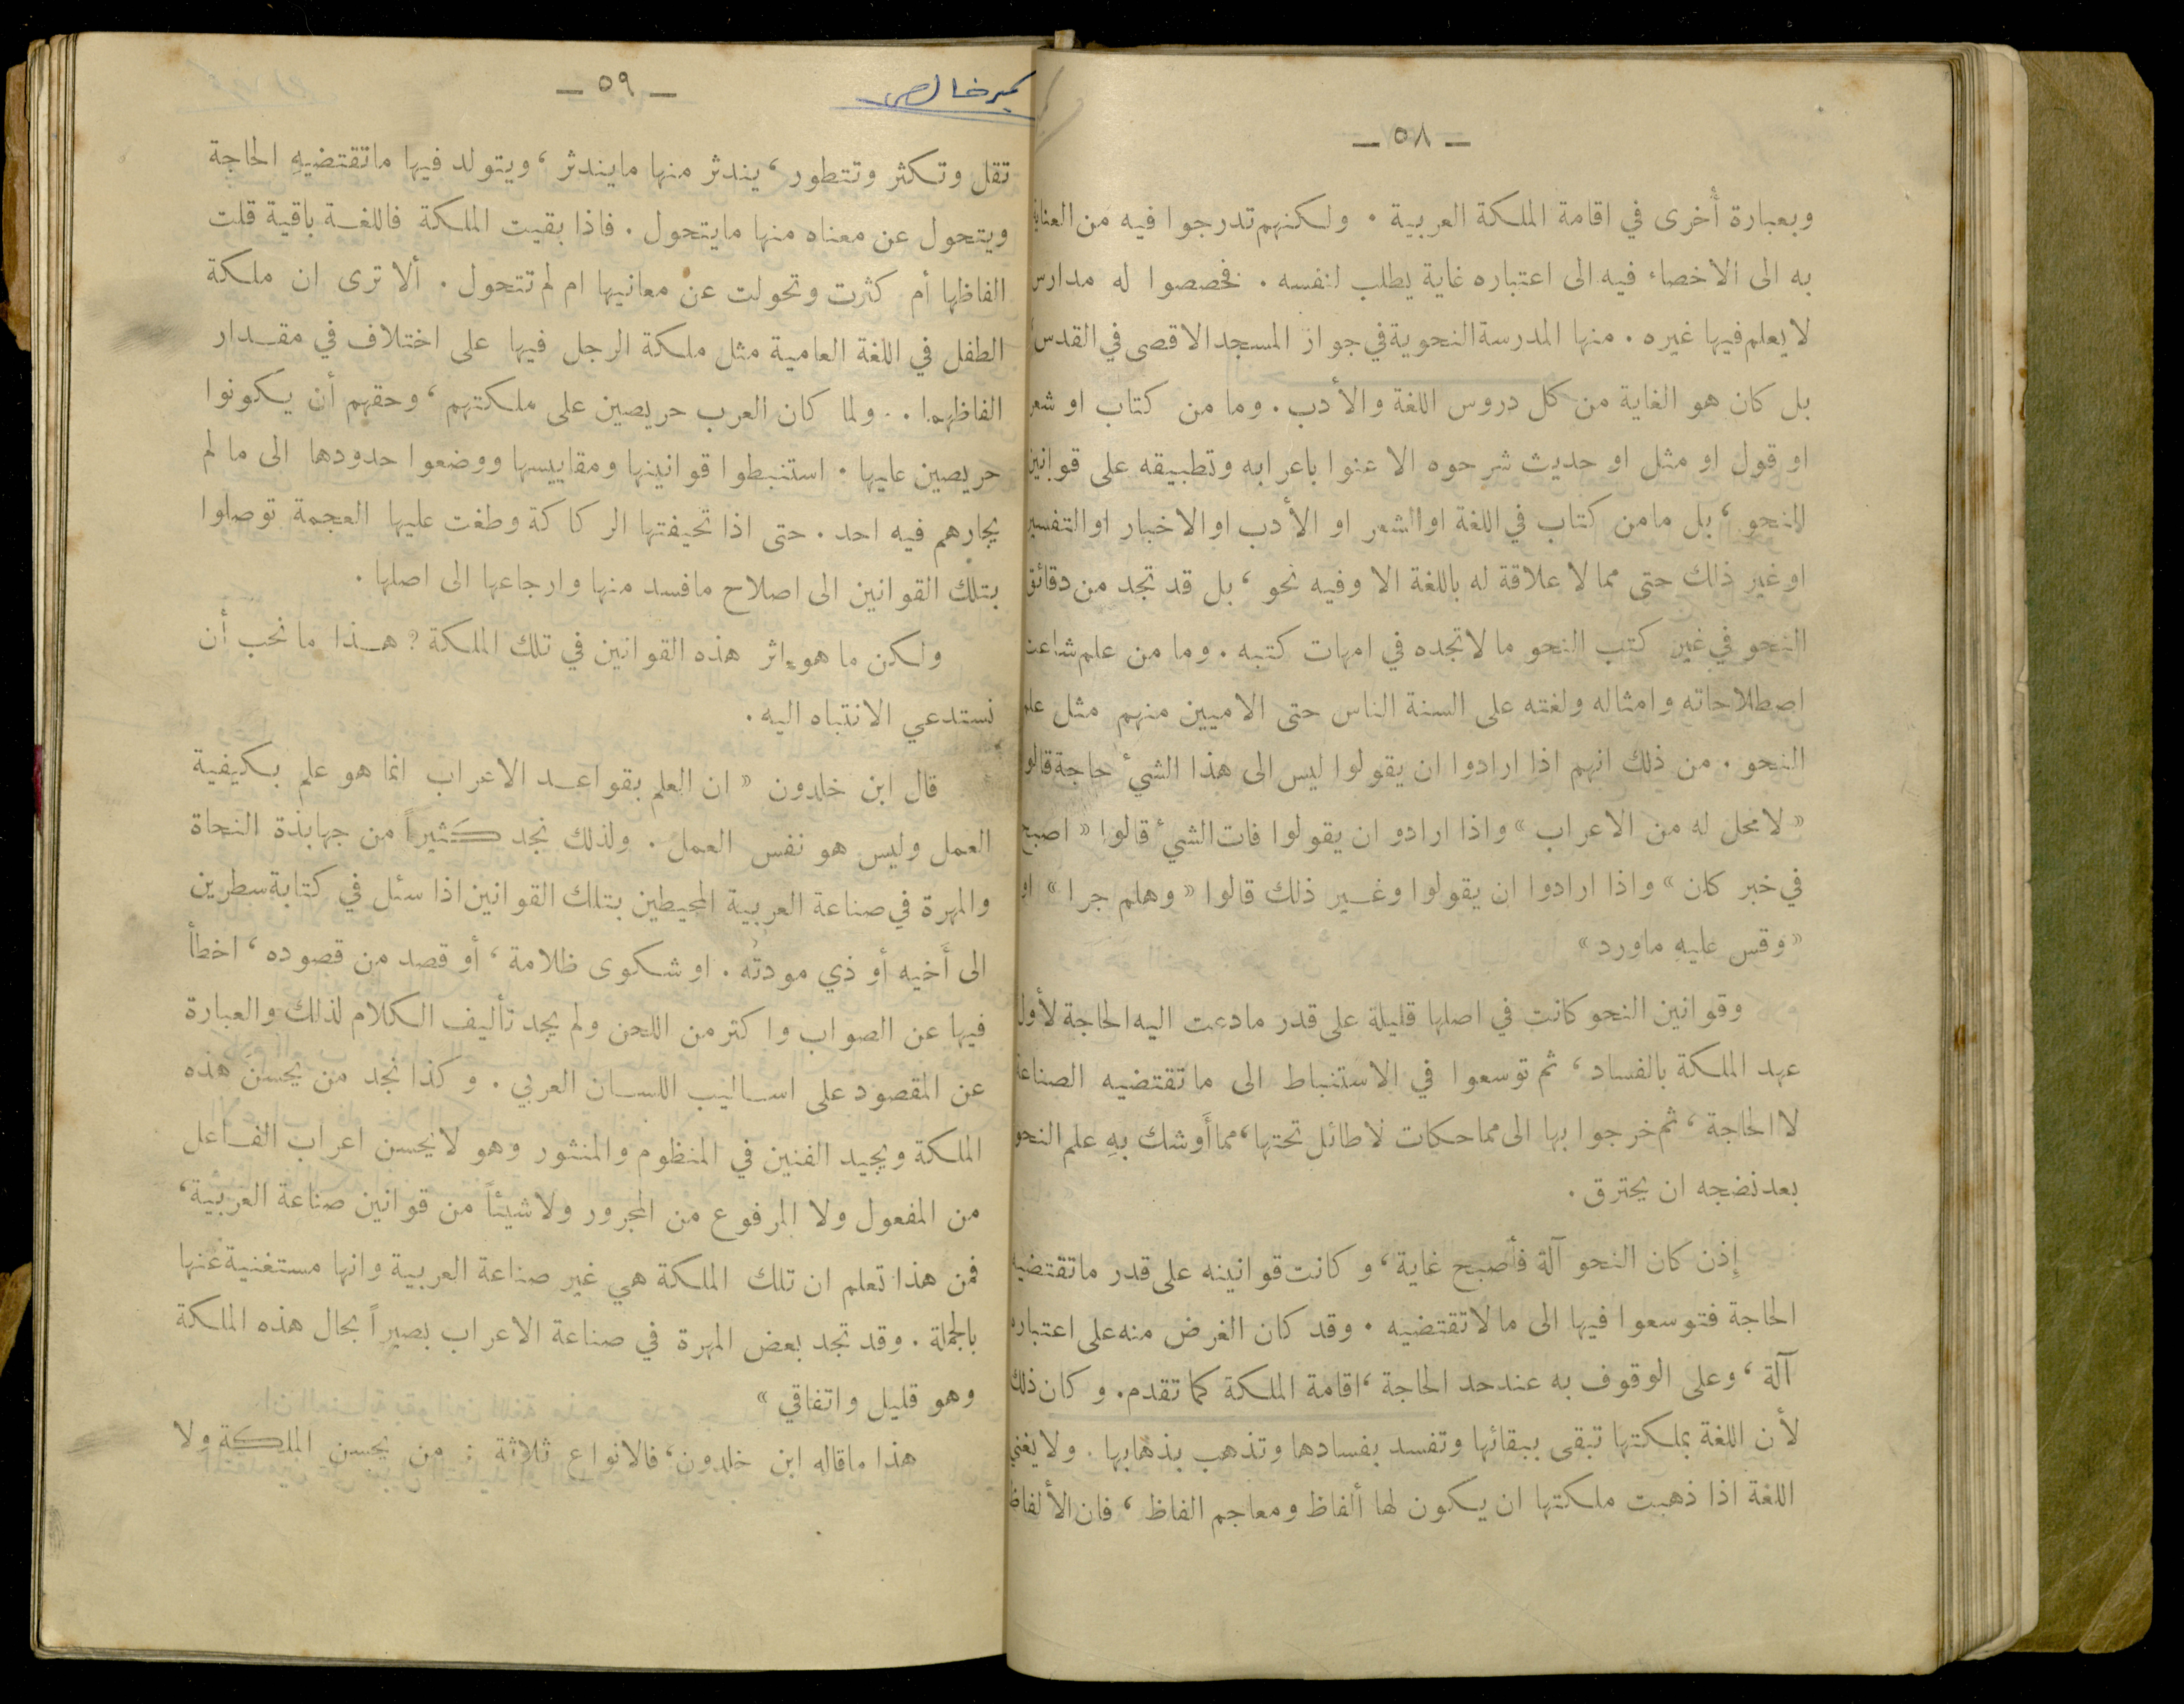 — ٥٨ —
وبعبارة أُخرى في اقامة الملكة العربية . ولكنهم تدرجوا فيه من العناية
به الى الاخصاء فيه الى اعتباره غاية يطلب لنفسه . فخصصوا له مدارس
لا يعلم فيها غيره . منها المدرسة النحوية في جوار المسجد الاقصى في القدس،
بل كان هو الغاية من كل دروس اللغة والأدب . وما من كتاب او شعر
او قول او مثل او حديث شرحوه الا عنوا باعرابه وتطبيقه على قوانين
النحو ، بل مامن كتاب في اللغة او الشعر او الأدب او الاخبار او التفسير
او غير ذلك حتى مما لا علاقة له باللغة الا وفيه نحو ، بل قد تجد من دقائق
النحو في غير كتب النحو ما لا تجده في امهات كتبه . وما من علم شاعت
اصطلاحاته وامثاله ولغته على السنة الناس حتى الاميين منهم مثل علم
النحو . من ذلك انهم اذا ارادوا ان يقولوا ليس الى هذا الشيء حاجة قالوا
« لا محل له من الاعراب » واذا ارادو ان يقولوا فات الشيء قالوا « اصبح
في خبر كان » واذا ارادوا ان يقولوا وغير ذلك قالوا « وهلم جرا » او
« وقس عليهِ ماورد »
وقوانين النحو كانت في اصلها قليلة على قدر مادعت اليه الحاجة لأول
عهد الملكة بالفساد ، ثم توسعوا في الاستنباط الى ما تقتضيه الصناعة
لا الحاجة ، ثم خرجوا بها الى مماحكات لا طائل تحتها ، مما أَوشك بهِ علم النحو
بعد نضجه ان يحترق .
إِذن كان النحو آلة فأصبح غاية ، وكانت قوانينه على قدر ماتقتضيه
الحاجة فتوسعوا فيها الى ما لا تقتضيه . وقد كان الغرض منه على اعتباره
آلة ، وعلى الوقوف به عند حد الحاجة ، اقامة الملكة كما تقدم . وكان ذلك
لأن اللغة بملكتها تبقى ببقائها وتفسد بفسادها وتذهب بذهابها . ولا يغني
اللغة اذا ذهبت ملكتها ان يكون لها ألفاظ ومعاجم الفاظ ، فان الألفاظ
— ٥٩ —
تقل وتكثر وتتطور ، يندثر منها مايندثر ، ويتولد فيها ماتقتضيهِ الحاجة
ويتحول عن معناه منها مايتحول . فاذا بقيت الملكة فاللغة باقية قلت
الفاظها أم كثرت وتحولت عن معانيها ام لم تتحول . ألا ترى ان ملكة
الطفل في اللغة العامية مثل ملكة الرجل فيها على اختلاف في مقدار
الفاظهما . . ولما كان العرب حريصين على ملكتهم ، وحقهم أن يكونوا
حريصين عليها . استنبطوا قوانينها ومقاييسها ووضعوا حدودها الى ما لم
يجارهم فيه احد . حتى اذا تحيفتها الركاكة وطغت عليها العجمة توصلوا
بتلك القوانين الى اصلاح مافسد منها وارجاعها الى اصلها .
ولكن ما هو اثر هذه القوانين في تلك الملكة ؟ هذا ما نحب أن
نستدعي الانتباه اليه .
قال ابن خلدون « ان العلم بقواعد الاعراب انما هو علم بكيفية
العمل وليس هو نفس العمل . ولذلك نجد كثيراً من جهابذة النحاة
والمهرة في صناعة العربية المحيطين بتلك القوانين اذا سئل في كتابة سطرين
الى أَخيه أو ذي مودته . او شكوى ظلامة ، أو قصد من قصوده ، اخطأ
فيها عن الصواب واكتر من اللحن ولم يجد تأليف الكلام لذلك والعبارة
عن المقصود على اساليب اللسان العربي . وكذا نجد من يحسن هذه
الملكة ويجيد الفنين في المنظوم والمنثور وهو لا يحسن اعراب الفاعل
من المفعول ولا المرفوع من المجرور ولا شيئاً من قوانين صناعة العربية ،
فمن هذا تعلم ان تلك الملكة هي غير صناعة العربية وانها مستغنية عنها
بالجملة . وقد تجد بعض المهرة في صناعة الاعراب بصيراً بحال هذه الملكة
وهو قليل واتفاقي »
هذا ماقاله ابن خلدون ، فالانواع ثلاثة : من يحسن الملكة ولا